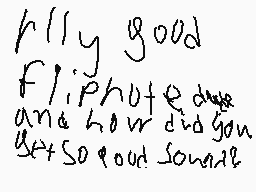 rlly good
flipnote dude
and how did you
get so good sounds